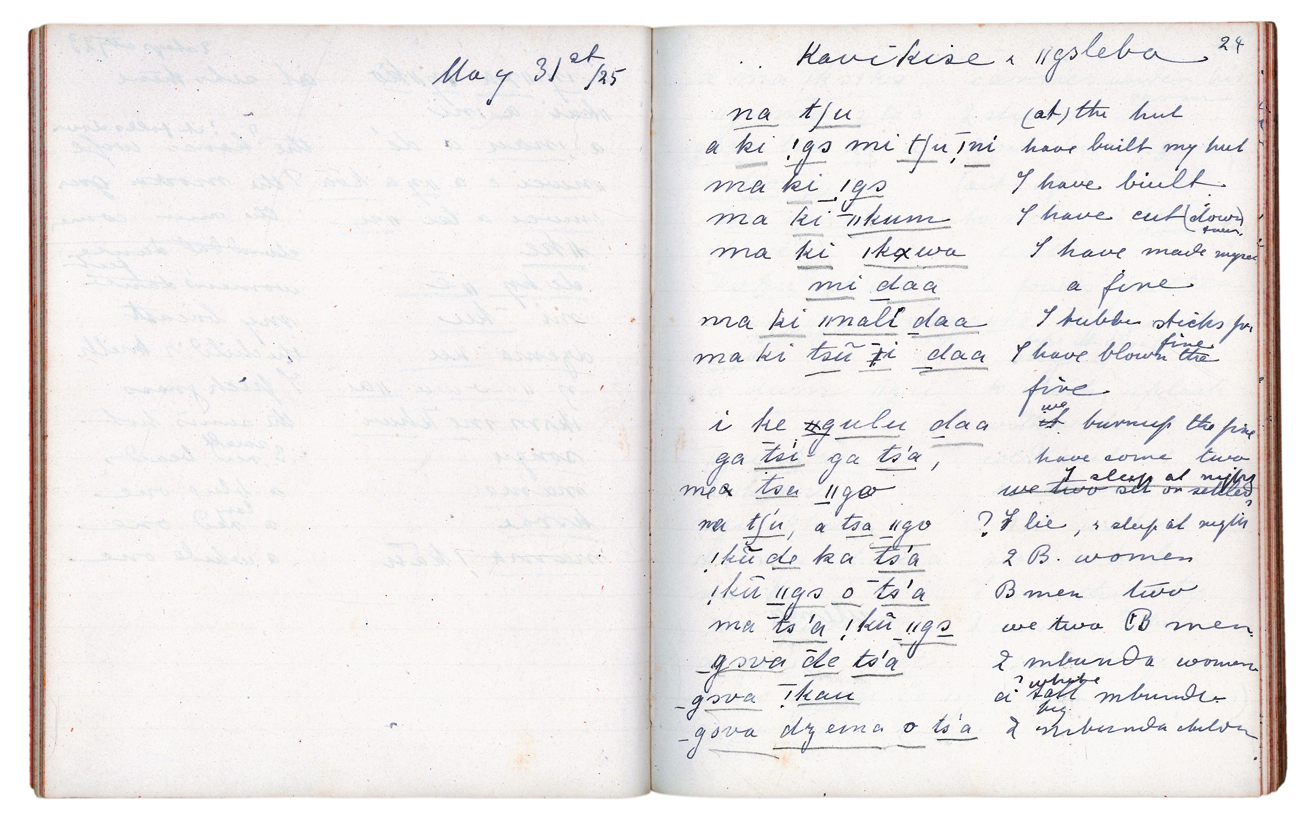 May 31st/25
Kavikise & ǁgsleba 24
na tʃu (at) the hut
a ki !gs mi tʃu !ni have built my hut
ma ki ǀgs I have built
ma ki ǁkum I have cut (down)
ma ki ǀkxwa I have made myself
mi daa a fire
ma ki ǁnali daa I rubbe sticks for fire
ma ki tsũ ti daa I have blown the
fire
i ke ǁgulu daa we burnup the fire
ga tsi ga ts'a, have come two
mea tsa ǁgo I sleep at night
we two sit or settled
na tʃu, a tsa ǁgo ? I lie, & sleep at night
!kũ de ka ts'a 2 B. women
!kũ ǁgs o ts'a B men two
ma ts'a !kũ ǁgs we two B men
gova de ts'a 2 mbunda women
gova !kau a ? white tall mbunda
big
gova dzema o ts'a 2 mbunda children